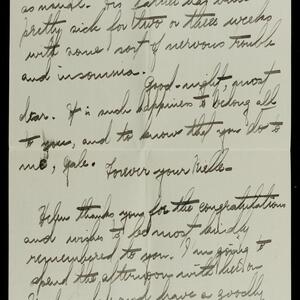 as usual. His father has been
pretty sick for two or three weeks
with some sort of nervous trouble
and insomnia.
Good-night, most
dear. It is such happiness to belong all
to you, and to know that you do to
me, Gale. Forever your Nelle.
Helen thanks you for the congratulations
and wishes to be most kindly
remembered to you. I'm going to
spend the afternoon with her on
and have a goodly